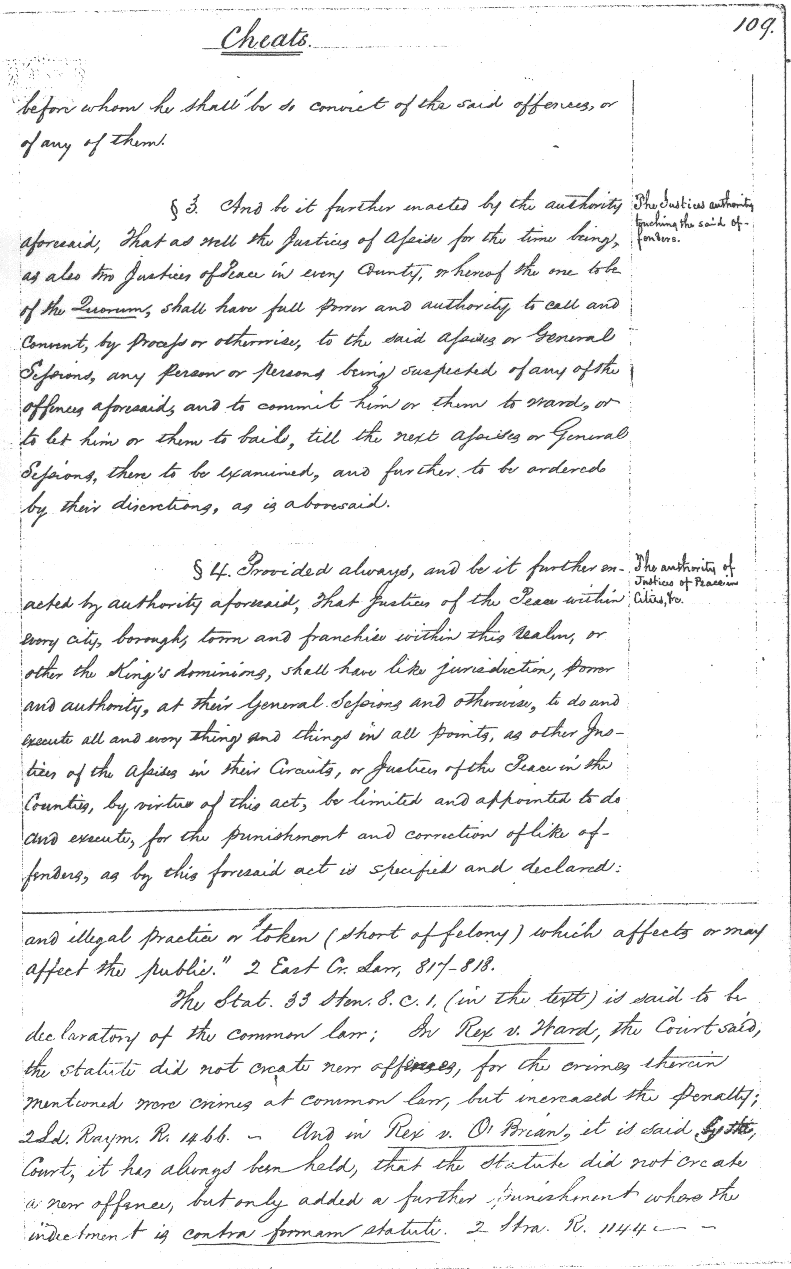 109.
Cheats.
before whom he shall be so convict of the said offences, or
of any of them.
§ 3. And be it further enacted by the authority
aforesaid, That as well the Justices of Assise for the time being,
as also two Justices of Peace in every County, whereof the one to be
of the Quorum, shall have full power and authority to call and
convent, by process or otherwise, to the said assises or General
Sessions, any person or persons being suspected of any of the
offences aforesaid, and to commit him or them to ward, or
to let him or them to bails, till the next assises or General
Sessions, there to be examined, and further to be ordered
by their discretions, as is abovesaid.
The Justices authority
touching the said of-
fenders.
§ 4. Provided always, and be it further en-
acted by authority aforesaid, That Justices of the Peace within
every city, borough, town and franchise within this realm, or
other the King's dominions, shall have like jurisdiction, power
and authority, at their General Sessions and otherwise, to do and
execute all and every thing and things in all points, as other Jus-
tices of the Assises in their Circuits, or Justices of the Peace in the
Counties, by virtue of this act, be limited and appointed to do
and execute, for the punishment and correction of like of-
fenders, as by this foresaid act is specified and declared:
The authority of
Justices of Peace in
Cities, &c.
and illegal practice or token (short of felony) which affects or may
affect the public." 2 East Cr. Law, 817-818.
The Stat. 33 Hen. 8. c. 1, (in the text) is said to be
declaratory of the common law; In Rex v. Ward, the Court said,
the statute did not create new offences, for the crimes therein
mentioned were crimes at common law, but increased the penalty;
2 Ld. Raym. R. 1466. — And in Rex v. O'Brian, it is said by the
Court, it has always been held, that the statute did not create
a new offence, but only added a further punishment where the
indictment is contra formam statute. 2 Stra. R. 1144 — —